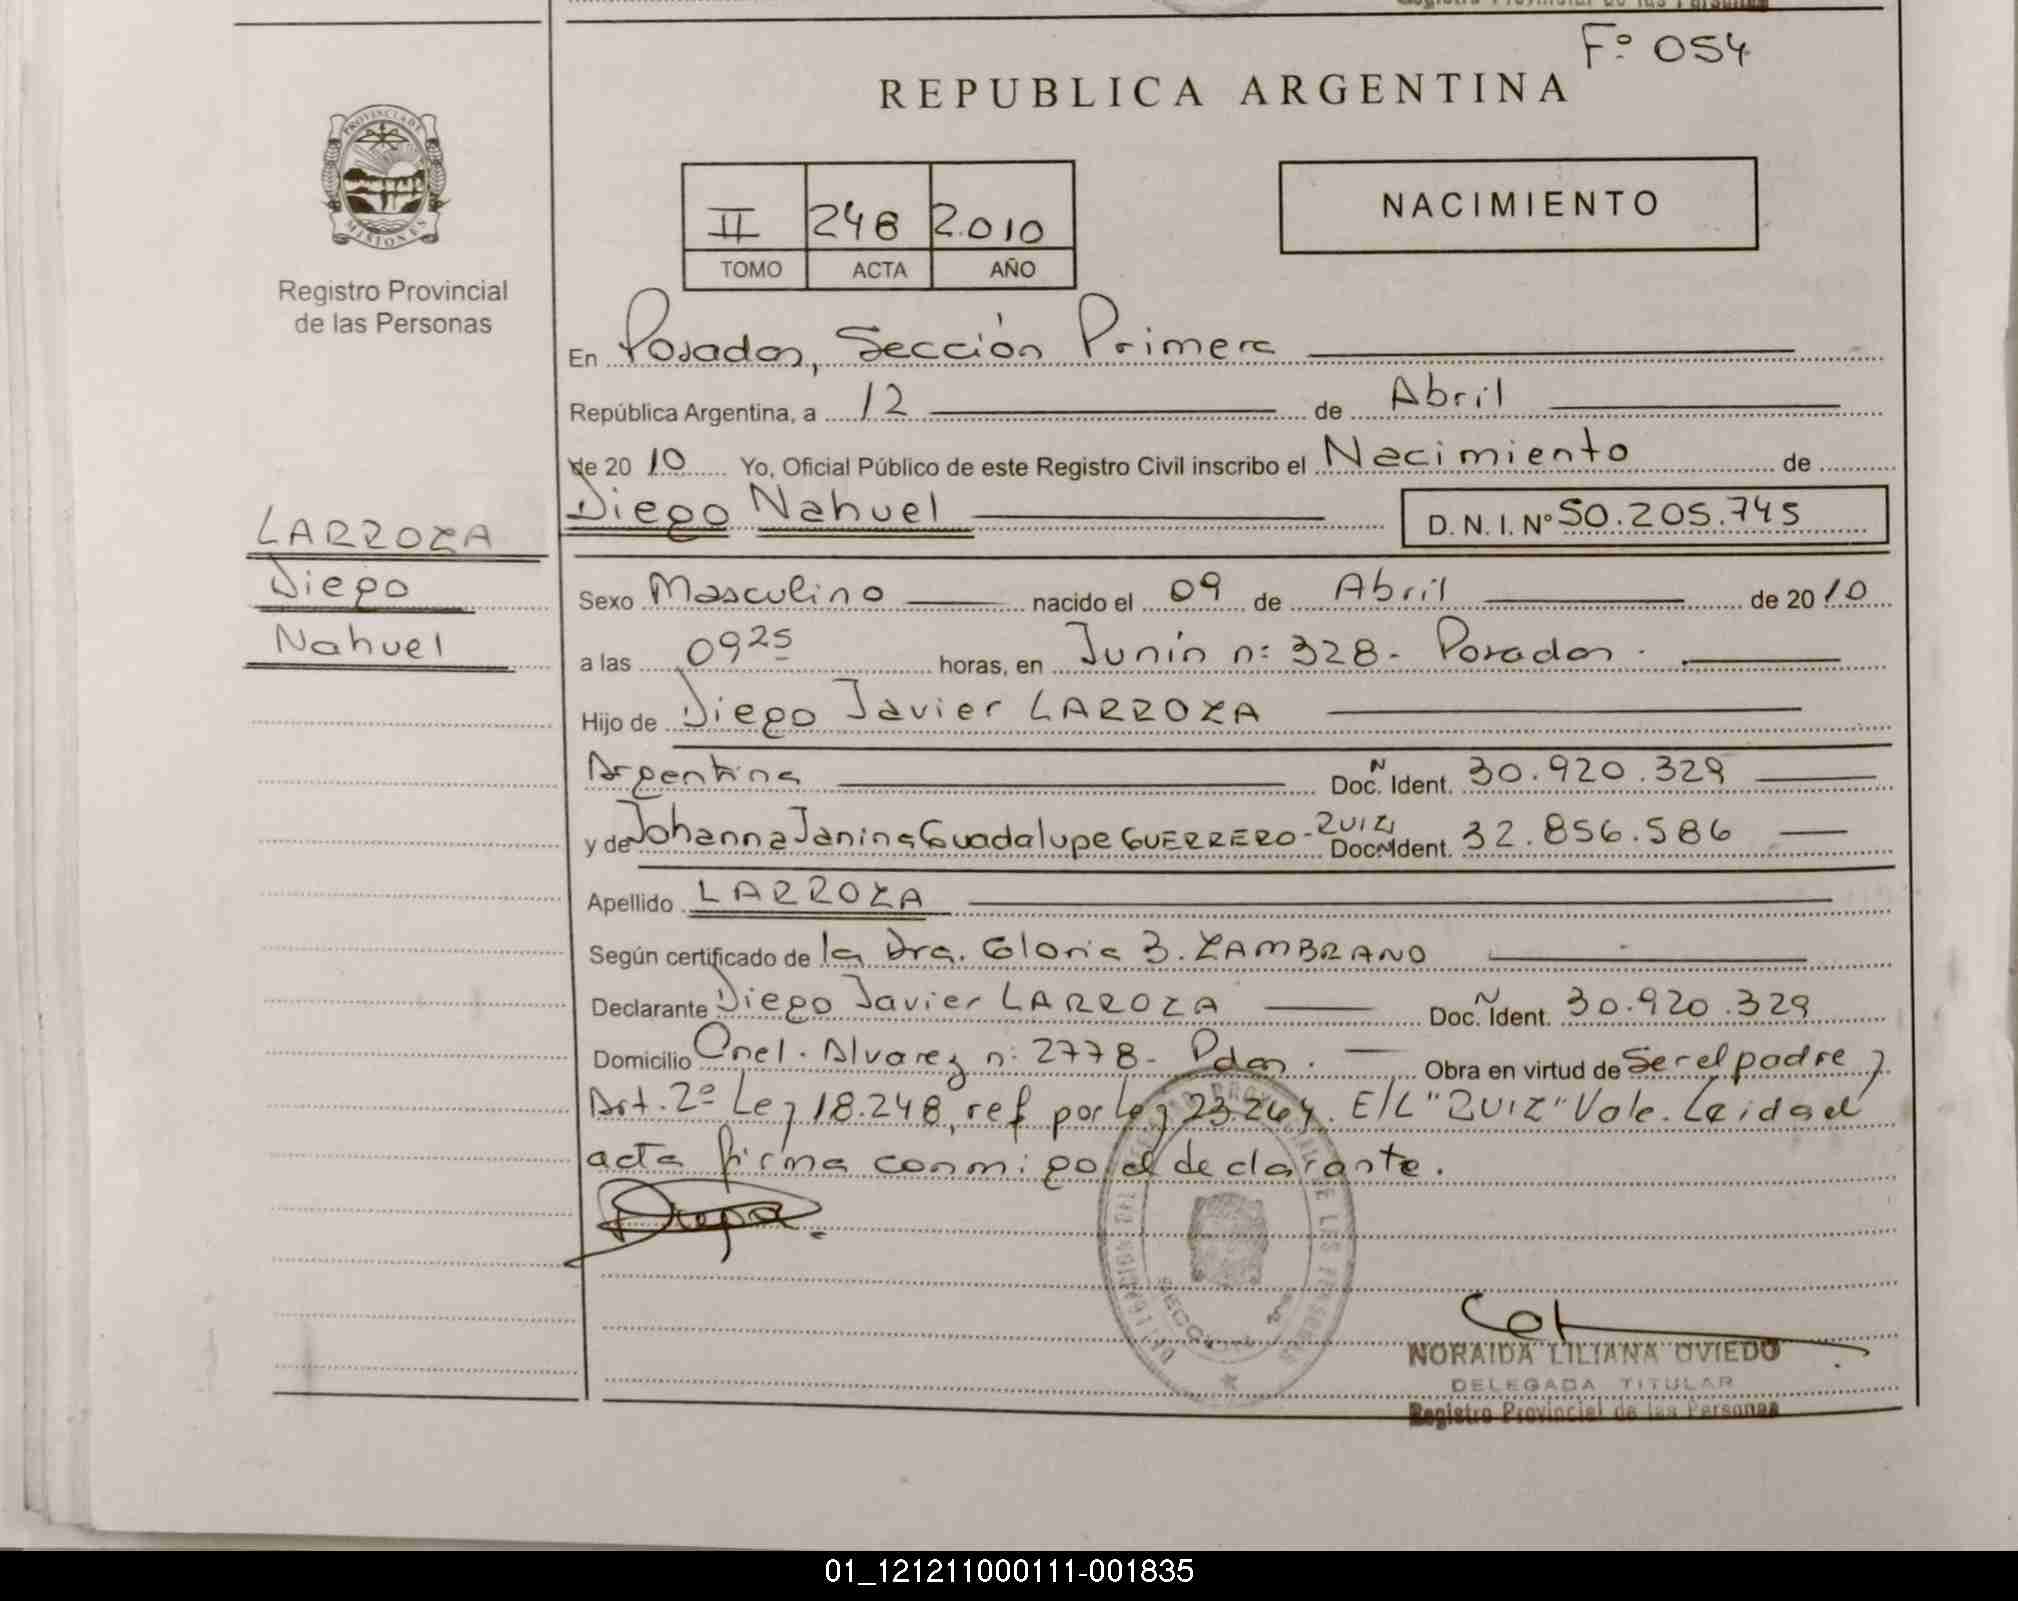 Registro Provincial de las Personas
Fº 054
REPUBLICA ARGENTINA
PROVINCIA DE
MISIONES
Registro Provincial
de las Personas
II 248 2.010
TOMO ACTA AÑO
NACIMIENTO
En Posadas, Sección Primera
República Argentina, a 12 de Abril
de 2010 Yo, Oficial Público de este Registro Civil inscribo el Nacimiento de
Diego Nahuel D.N.I. Nº 50.205.745
LARROZA
Diego
Nahuel
Sexo Masculino nacido el 09 de Abril de 2010
a las 09 25 horas, en Junín n: 328- Posadas.
Hijo de Diego Javier LARROZA
Argentina Doc. N Ident. 30.920.329
y de Johanna Janina Guadalupe GUERRERO- RUIZ Doc. N Ident. 32.856.586
Apellido LARROZA
Según certificado de la Dra. Gloria B. ZAMBRANO
Declarante Diego Javier LARROZA Doc. N Ident. 30.920.329
Domicilio Cnel. Alvarez n: 2778- Pdas. Obra en virtud de Ser el padre y
Art. 2º Ley 18.248, ref por Ley 23.264. E/L "RUIZ" Vale. Leida el
acta firma conmigo el declarante.
DELEGACION DEL REGISTRO PROVINCIAL DE LAS PERSONAS
SECCION
NORAIDA LILIANA OVIEDO
DELEGADA TITULAR
Registro Provincial de las Personas
01_121211000111-001835